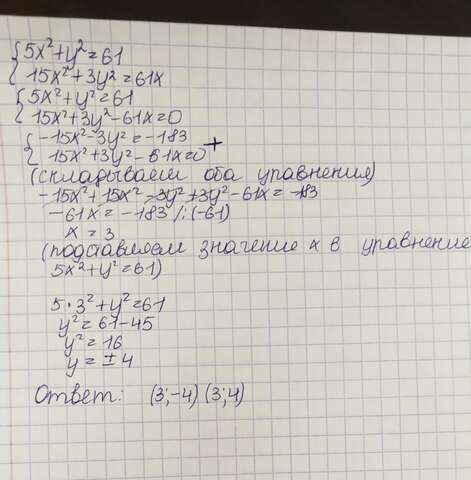 5x²+y²=61
15x²+3y²=61x
5x²+y²=61
15x²+3y²-61x=0
-15x²-3y²=-183
15x²+3y²-61x=0 +
(складываем оба уравнения)
-15x²+15x²-3y²+3y²-61x=-183
-61x=-183 /:(-61)
x=3
(подставляем значение x в уравнение
5x²+y²=61)
5·3²+y²=61
y²=61-45
y²=16
y=±4
Ответ: (3;-4) (3;4)